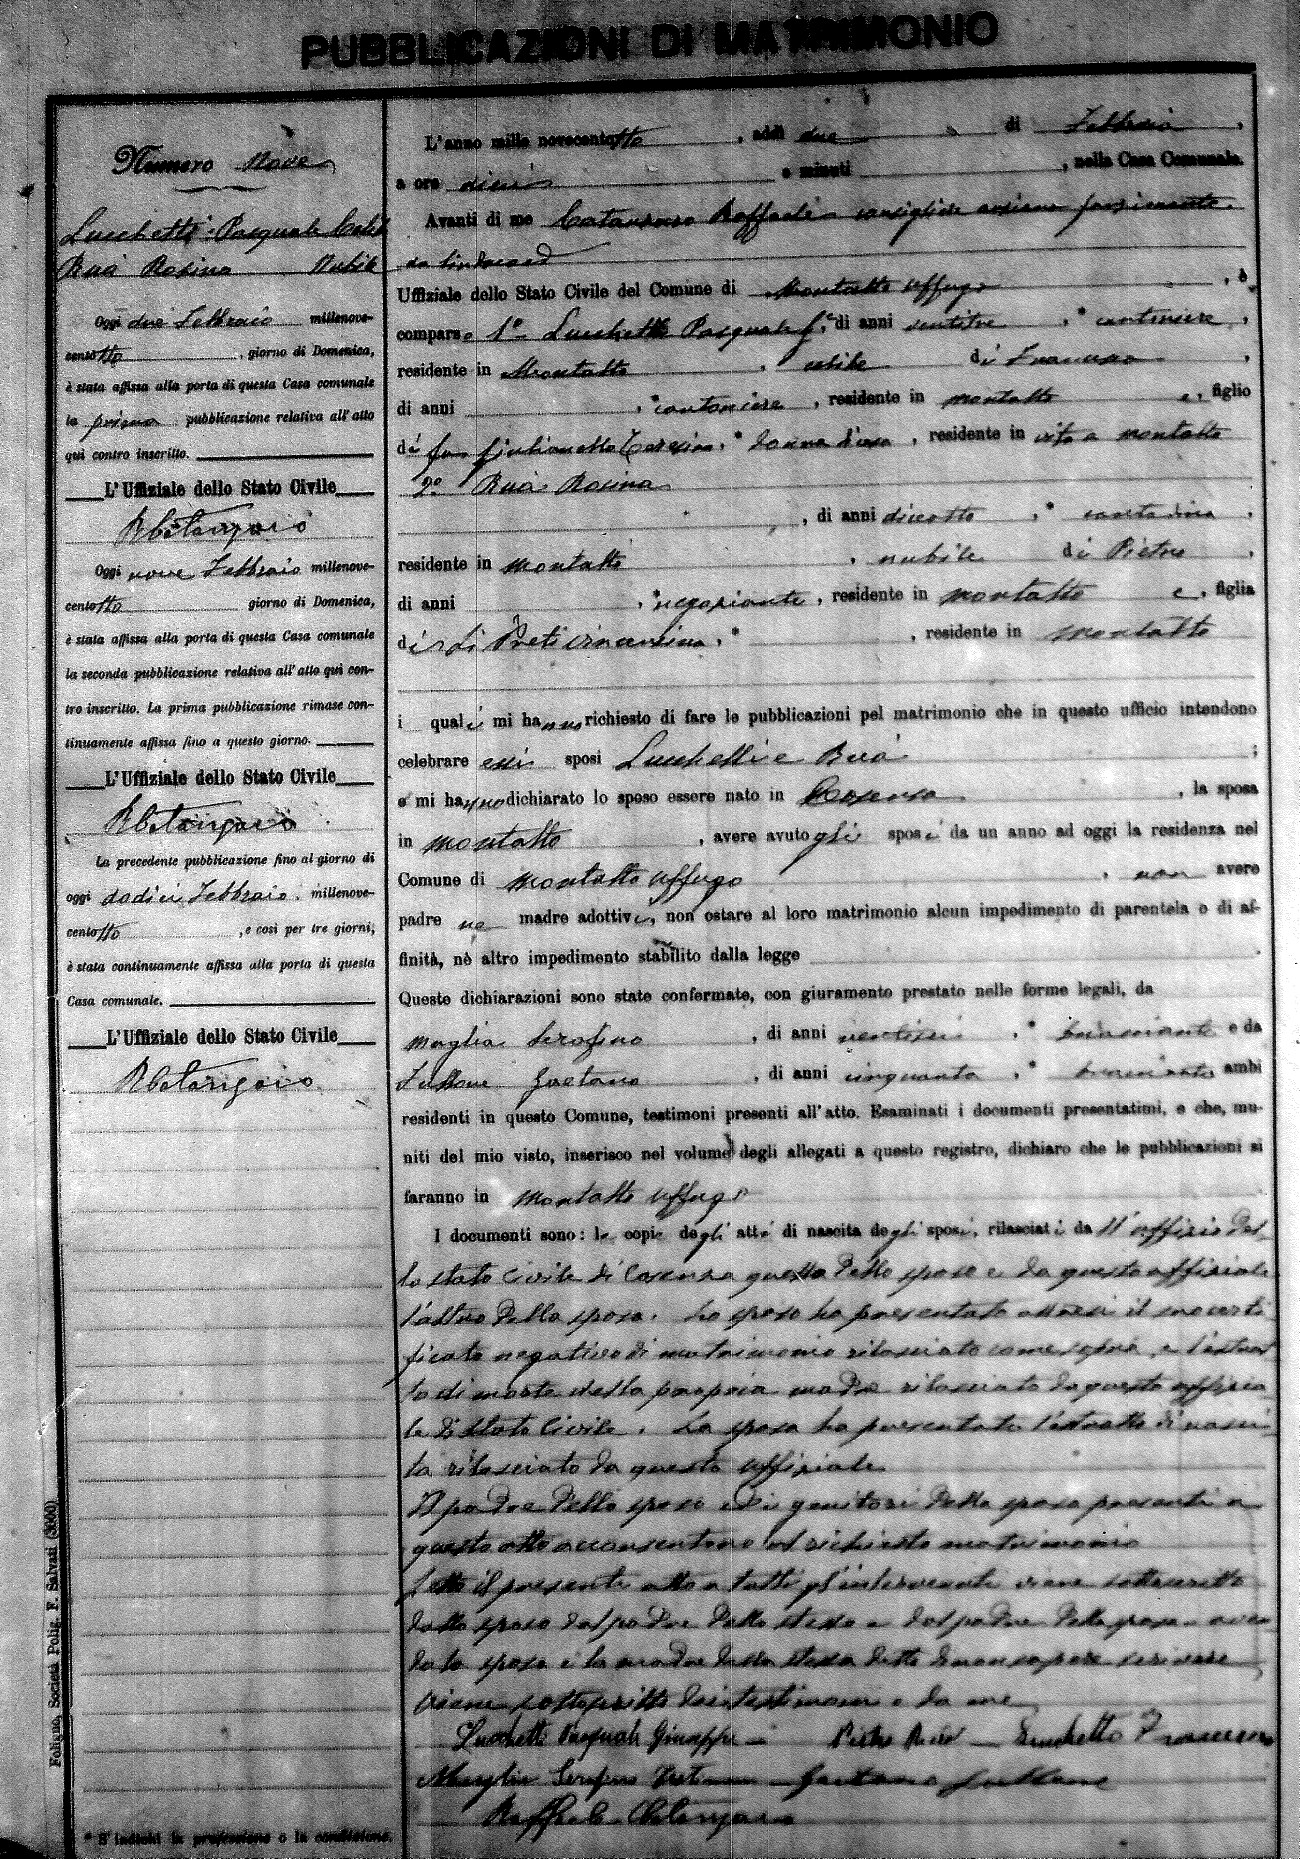 PUBBLICAZIONI DI MATRIMONIO
Numero Nove
Lucchetti Pasquale Celib
Ruà Rosina Nubile
Oggi due Febbraio millenove-
centotto, giorno di Domenica,
è stata affissa alla porta di questa Casa comunale
la prima pubblicazione relativa all'atto
qui contro inscritto.
L'Uffiziale dello Stato Civile
Oggi nove Febbraio millenove-
centotto giorno di Domenica,
è stata affissa alla porta di questa Casa comunale
la seconda pubblicazione relativa all'atto quì con-
tro inscritto. La prima pubblicazione rimase con-
tinuamente affissa fino a questo giorno.
L'Uffiziale dello Stato Civile
La precedente pubblicazione fino al giorno di
oggi dodici Febbraio, millenove-
centotto, e così per tre giorni,
è stata continuamente affissa alla porta di questa
Casa comunale.
L'Uffiziale dello Stato Civile
Foligno, Società Polig. F. Salvati (3000)
* S'indichi la professione o la condizione.
L'anno mille novecentotto, addì due di Febbraio,
a ore dieci e minuti , nella Casa Comunale.
Avanti di me Catanzaro Raffaele consigliere anziano funzionante
da sindaco
Uffiziale dello Stato Civile del Comune di Montalto Uffugo, è
comparso 1° Lucchetti Pasquale G. di anni ventitre, * cantoniere,
residente in Montalto, celibe di Francesco,
di anni , *cantoniere, residente in Montalto e, figlio
di fu Teresina, * donna di casa, residente in vita a Montalto
2° Ruà Rosina
, di anni diciotto, * contadina,
residente in Montalto, nubile di Pietro,
di anni , *negoziante, residente in Montalto e, figlia
di Preti Vincenzina, * , residente in Montalto
i quali mi hanno richiesto di fare le pubblicazioni pel matrimonio che in questo ufficio intendono
celebrare essi sposi Lucchetti e Ruà;
e mi hanno dichiarato lo sposo essere nato in Cosenza, la sposa
in Montalto, avere avuto gli sposi da un anno ad oggi la residenza nel
Comune di Montalto Uffugo, non avere
padre ne madre adottivi, non ostare al loro matrimonio alcun impedimento di parentela o di af-
finità, nè altro impedimento stabilito dalla legge
Queste dichiarazioni sono state confermate, con giuramento prestato nelle forme legali, da
Maglia Serafino, di anni ventisei, * e da
Gaetano, di anni cinquanta, * ambi
residenti in questo Comune, testimoni presenti all'atto. Esaminati i documenti presentatimi, e che, mu-
niti del mio visto, inserisco nel volume degli allegati a questo registro, dichiaro che le pubblicazioni si
faranno in Montalto Uffugo
I documenti sono: le copie degli atti di nascita degli sposi, rilasciati da ll'uffizio del
lo stato Civile di Cosenza quella dello sposo e da questo uffiziale
l'altra della sposa. Lo sposo ha presentato altresì il suo certi
ficato negativo di matrimonio rilasciato come sopra e l'estrat
to di morte della propria madre rilasciato da questo uffizia
le di Stato Civile. La sposa ha presentato l'estratto di nasci
ta rilasciato da questo uffiziale
Il padre dello sposo ed i genitori della sposa presenti a
questo atto acconsentono al richiesto matrimonio
Letto il presente atto a tutti gl'intervenuti viene sottoscritto
dallo sposo dal padre dello stesso e dal padre della sposa avendo
la sposa e la madre della stessa detto di non sapere scrivere
viene sottoscritto dai testimoni e da me
Lucchetti Pasquale Giuseppe Pietro Ruà Lucchetto Francesco
Maglia Serafino Gaetano
Raffaele Catanzaro